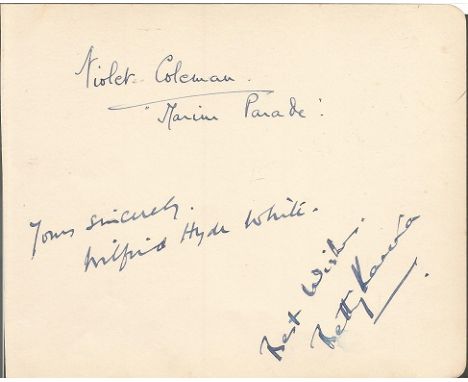 Violet Coleman.
"Marine Parade".
Yours sincerely.
Wilfrid Hyde White.
Best Wishes
Betty